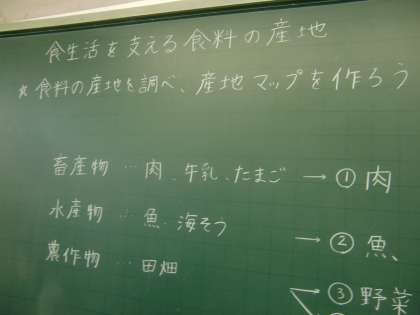 食生活を支える食料の産地
☆食料の産地を調べ、産地マップを作ろう
畜産物…肉、牛乳、たまご→①肉
水産物…魚、海そう
→②魚、
農作物…田畑
③野菜